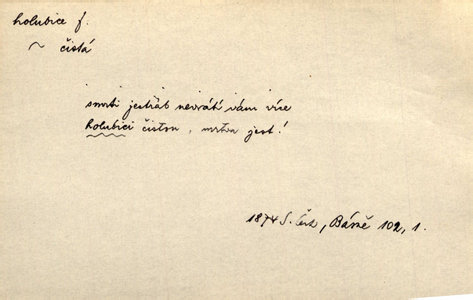 holubice f.
~ čistá
smrti jestřáb nevrátí vám více
holubici čistou, mrtva jest!
1874 S. Čech, Básně 102, 1.